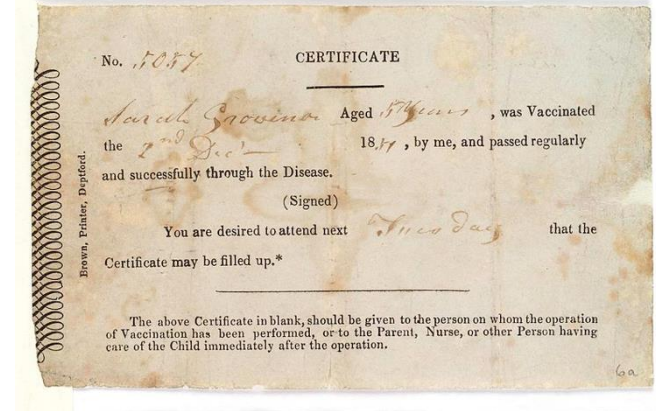 No. 5057 CERTIFICATE
Sarah Aged 5 Years , was Vaccinated
the 2nd Decr 185 , by me, and passed regularly
and successfully through the Disease.
(Signed)
You are desired to attend next Tuesday that the
Certificate may be filled up.*
The above Certificate in blank, should be given to the person on whom the operation
of Vaccination has been performed, or to the Parent, Nurse, or other Person having
care of the Child immediately after the operation.
Brown, Printer, Deptford.
6a